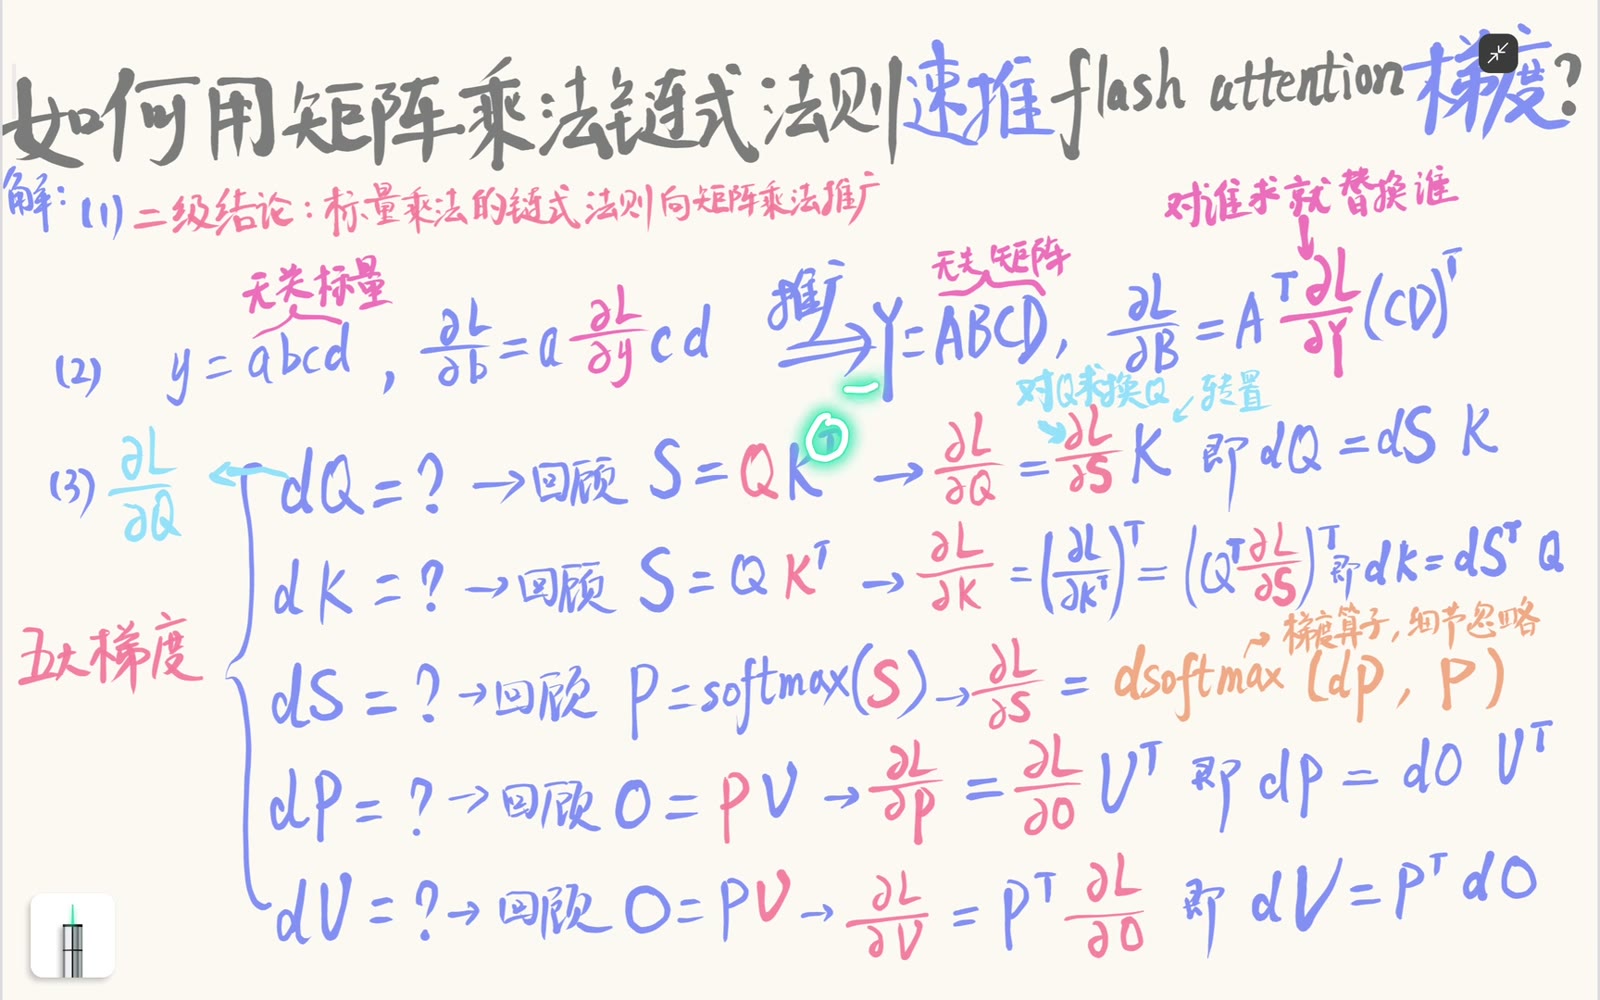 如何用矩阵乘法链式法则速推flash attention梯度?
解: (1) 二级结论: 标量乘法的链式法则向矩阵乘法推广
对谁求就替换谁
无关标量
推广
无关矩阵
(2) y = abcd , ∂L/∂b = a ∂L/∂y cd ⇒ Y = ABCD, ∂L/∂B = Aᵀ ∂L/∂Y (CD)ᵀ
对Q求换Q 转置
(3) ∂L/∂Q ← dQ = ? → 回顾 S = QKᵀ → ∂L/∂Q = ∂L/∂S K 即 dQ = dS K
dK = ? → 回顾 S = QKᵀ → ∂L/∂K = (∂L/∂Kᵀ)ᵀ = (Qᵀ ∂L/∂S)ᵀ 即 dK = dSᵀ Q
五大梯度
梯度算子, 细节忽略
dS = ? → 回顾 P = softmax(S) → ∂L/∂S = dsoftmax (dP, P)
dP = ? → 回顾 O = PV → ∂L/∂P = ∂L/∂O Vᵀ 即 dP = dO Vᵀ
dV = ? → 回顾 O = PV → ∂L/∂V = Pᵀ ∂L/∂O 即 dV = Pᵀ dO